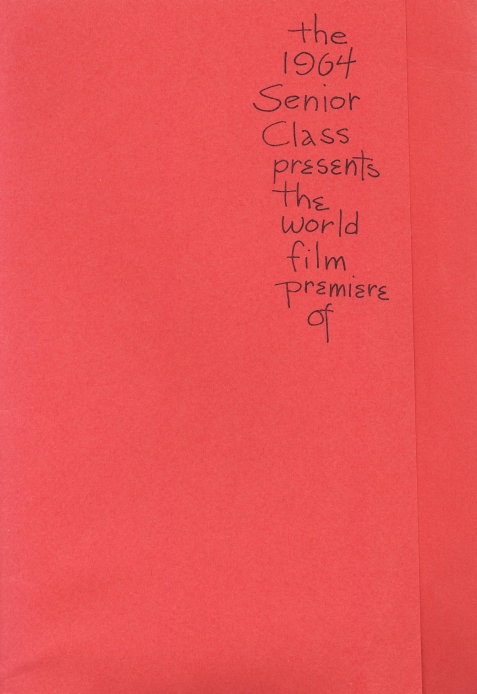 the
1964
Senior
Class
presents
the
world
film
premiere
of